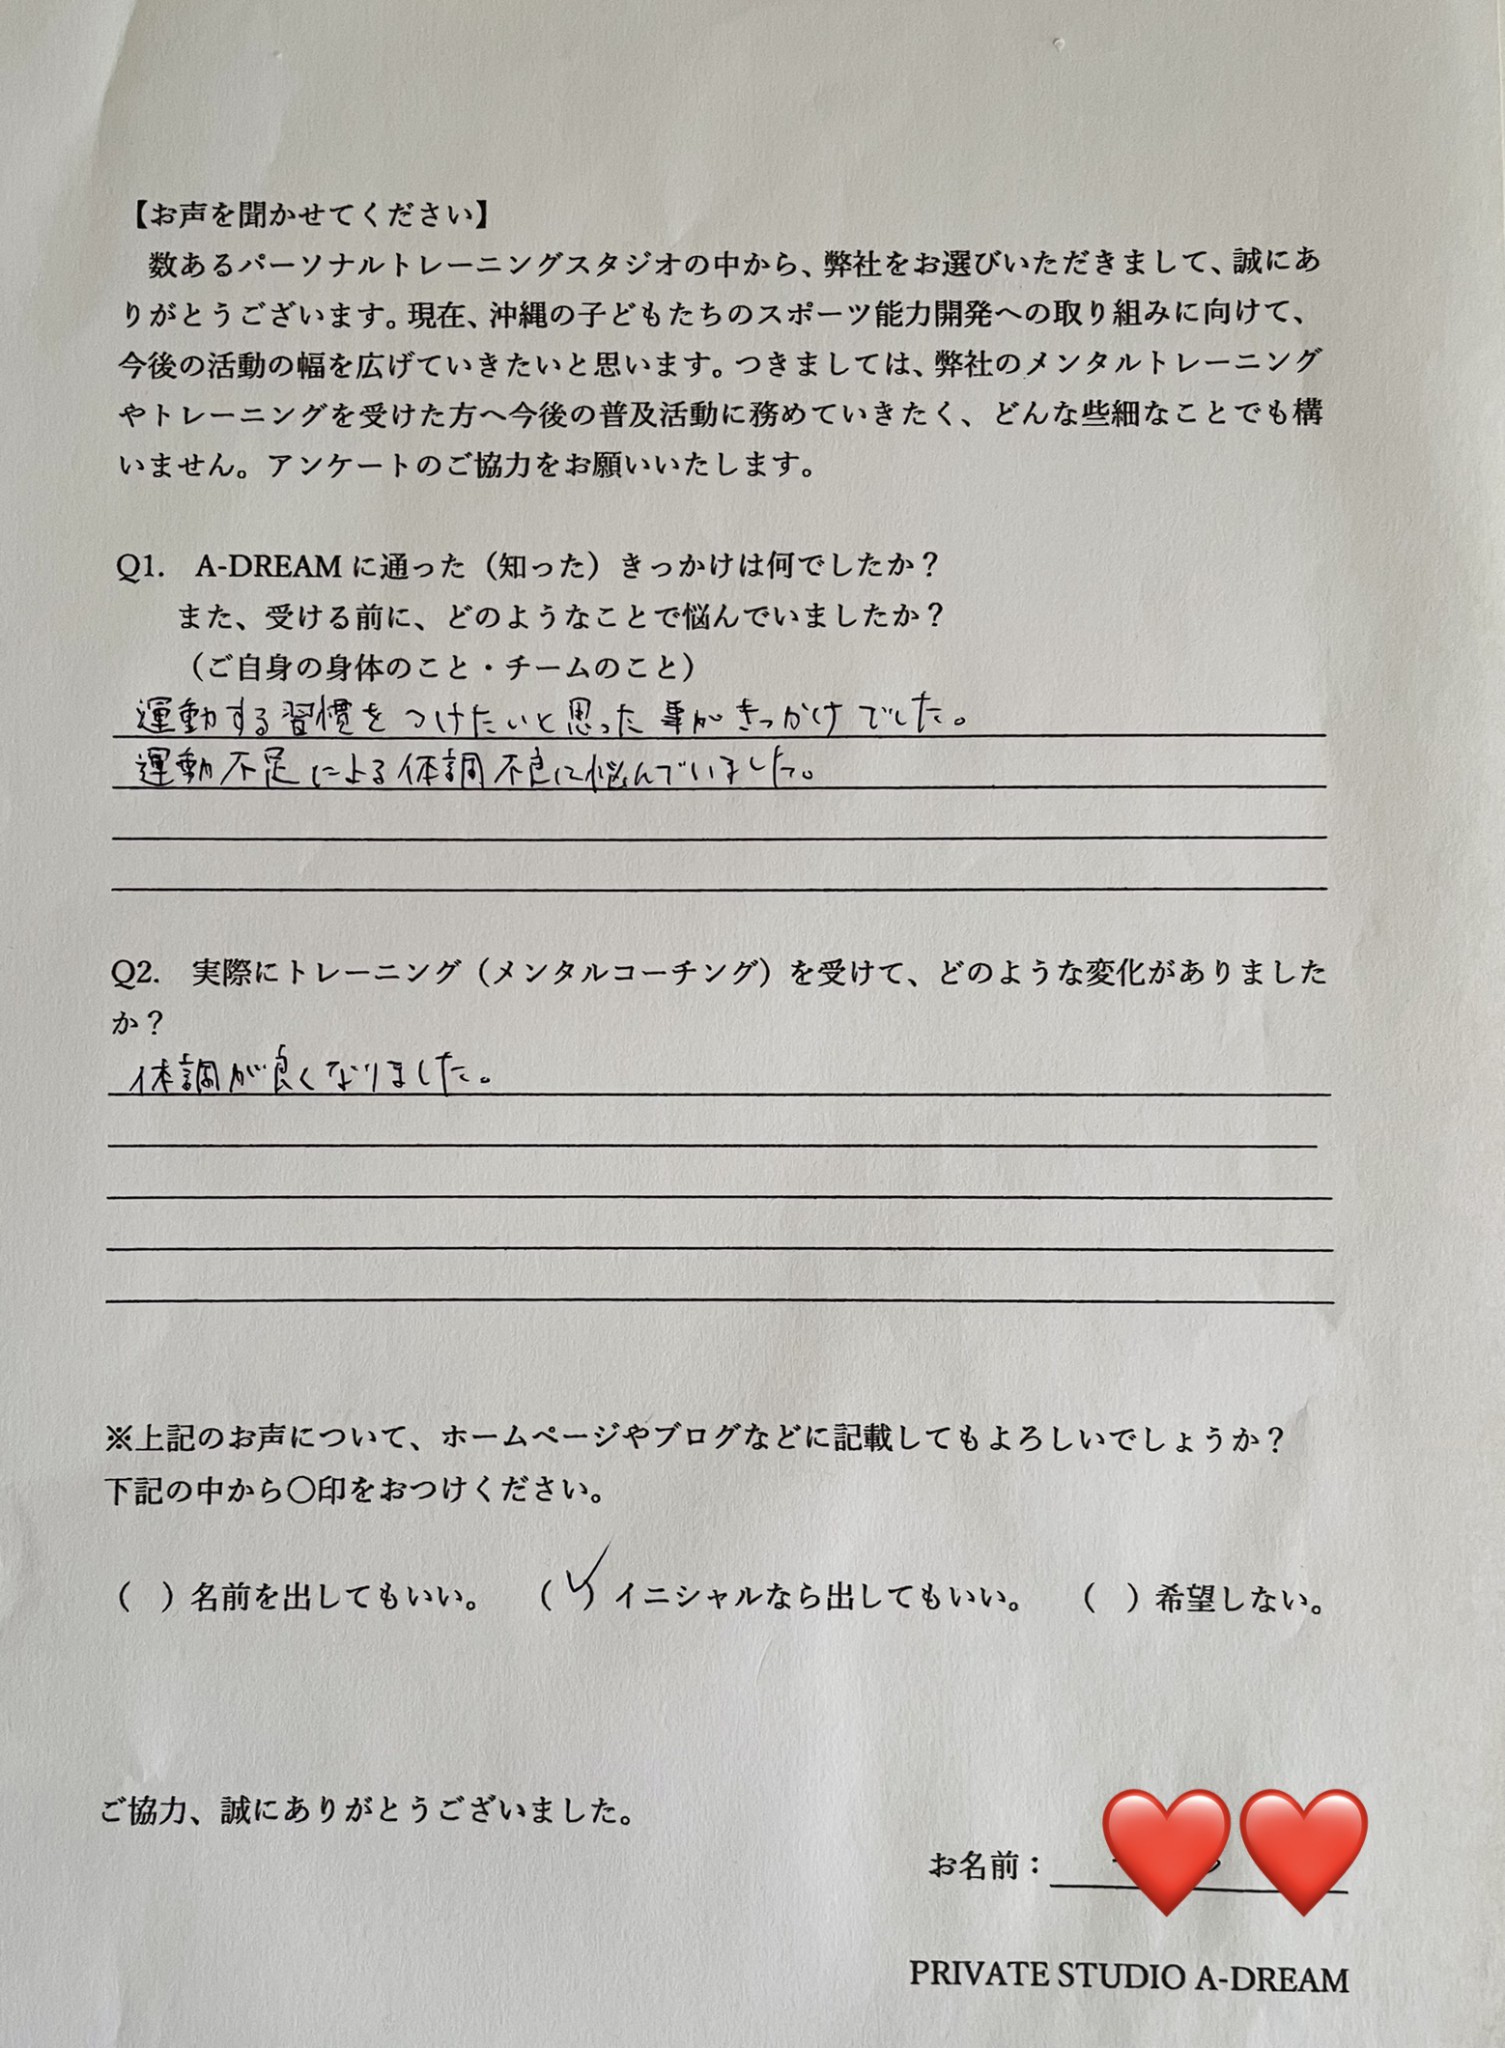 【お声を聞かせてください】
数あるパーソナルトレーニングスタジオの中から、弊社をお選びいただきまして、誠にあ
りがとうございます。現在、沖縄の子どもたちのスポーツ能力開発への取り組みに向けて、
今後の活動の幅を広げていきたいと思います。つきましては、弊社のメンタルトレーニング
やトレーニングを受けた方へ今後の普及活動に務めていきたく、どんな些細なことでも構
いません。アンケートのご協力をお願いいたします。
Q1. A-DREAMに通った（知った）きっかけは何でしたか？
また、受ける前に、どのようなことで悩んでいましたか？
（ご自身の身体のこと・チームのこと）
運動する習慣をつけたいと思った事がきっかけでした。
運動不足による体調不良に悩んでいました。
Q2. 実際にトレーニング（メンタルコーチング）を受けて、どのような変化がありました
か？
体調が良くなりました。
※上記のお声について、ホームページやブログなどに記載してもよろしいでしょうか？
下記の中から〇印をおつけください。
（ ）名前を出してもいい。 （✓）イニシャルなら出してもいい。 （ ）希望しない。
ご協力、誠にありがとうございました。
お名前：
PRIVATE STUDIO A-DREAM